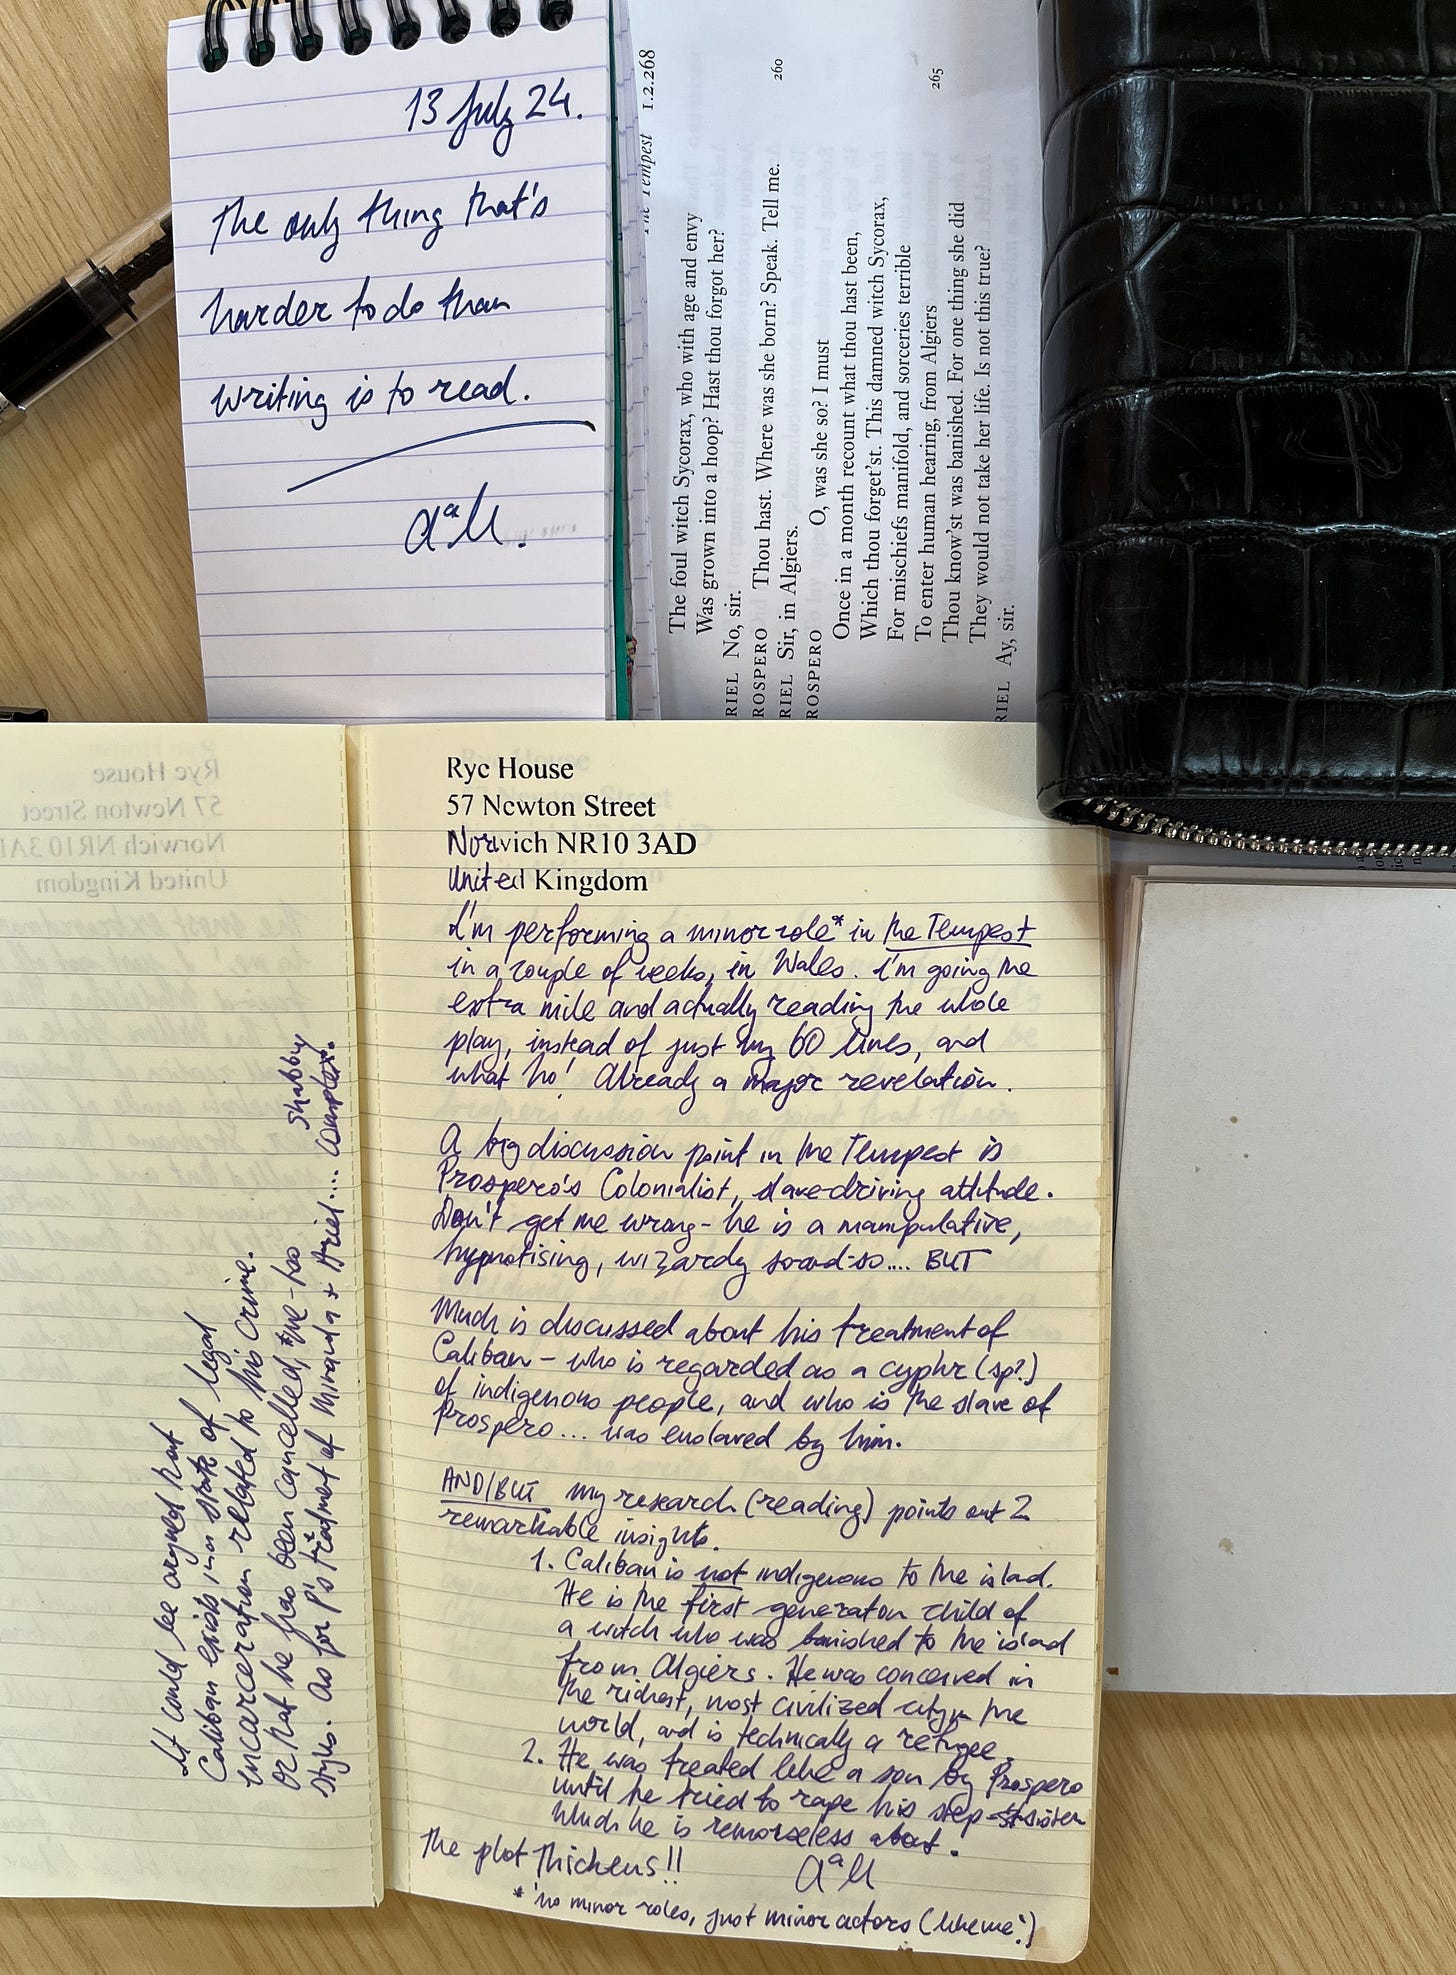 13 July 24.
The only thing that's
harder to do than
writing is to read.
The Tempest 1.2.268
The foul witch Sycorax, who with age and envy
Was grown into a hoop? Hast thou forgot her?
RIEL No, sir.
ROSPERO Thou hast. Where was she born? Speak. Tell me.
260
RIEL Sir, in Algiers.
ROSPERO O, was she so? I must
Once in a month recount what thou hast been,
Which thou forget'st. This damned witch Sycorax,
For mischiefs manifold, and sorceries terrible
To enter human hearing, from Algiers
265
Thou know'st was banished. For one thing she did
They would not take her life. Is not this true?
RIEL Ay, sir.
Rye House
57 Newton Street
Norwich NR10 3AD
United Kingdom
Rye House
57 Newton Street
Norwich NR10 3AD
United Kingdom
I'm performing a minor role* in The Tempest
in a couple of weeks, in Wales. I'm going the
extra mile and actually reading the whole
play, instead of just my 60 lines, and
what ho! Already a major revelation.
A big discussion point in The Tempest is
Prospero's Colonialist, slave-driving attitude.
Don't get me wrong - he is a manipulative,
hypnotising, wizardy so-and-so.... BUT
Much is discussed about his treatment of
Caliban - who is regarded as a cyphr (sp?)
of indigenous people, and who is the slave of
Prospero... was enslaved by him.
AND/BUT my research (reading) points out 2
remarkable insights.
1. Caliban is not indigenous to the islad.
He is the first generaton child of
a witch who was banished to the islad
from Algiers. He was conceived in
the richest, most civilized city in the
world, and is technically a refugee.
2. He was treated like a son by Prospero
until he tried to rape his step-sister
which he is remorseless about.
The plot thickens!!
* 'no minor roles, just minor actors (like me!)
It could be argued that
Caliban exists in a state of legal
incarceration related to his crime.
or that he has been cancelled, me-too
styles. As for P's treatment of Miranda + Ariel.... Shabby
complex.